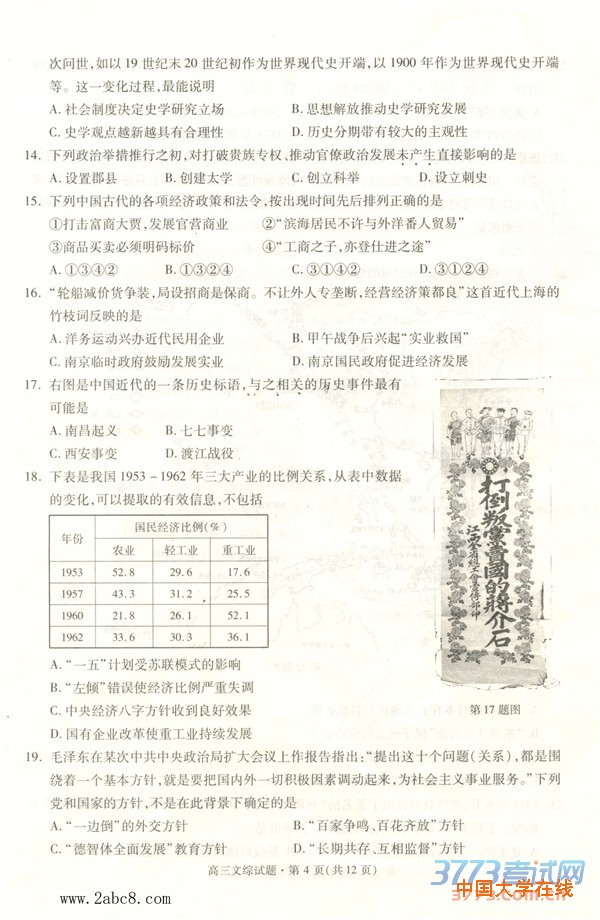 次问世,如以 19 世纪末 20 世纪初作为世界现代史开端,以 1900 年作为世界现代史开端
等。这一变化过程,最能说明
A. 社会制度决定史学研究立场 B. 思想解放推动史学研究发展
C. 史学观点越新越具有合理性 D. 历史分期带有较大的主观性
14. 下列政治举措推行之初,对打破贵族专权、推动官僚政治发展未产生直接影响的是
A. 设置郡县 B. 创建太学 C. 创立科举 D. 设立刺史
15. 下列中国古代的各项经济政策和法令,按出现时间先后排列正确的是
①打击富商大贾,发展官营商业 ②“滨海居民不许与外洋番人贸易”
③商品买卖必须明码标价 ④“工商之子,亦登仕进之途”
A. ①③④② B. ①③②④ C. ③①④② D. ③①②④
16. “轮船减价货争装,局设招商是保商。不让外人专垄断,经营经济策都良”这首近代上海的
竹枝词反映的是
A. 洋务运动兴办近代民用企业 B. 甲午战争后兴起“实业救国”
C. 南京临时政府鼓励发展实业 D. 南京国民政府促进经济发展
17. 右图是中国近代的一条历史标语,与之相关的历史事件最有
可能是
A. 南昌起义 B. 七七事变
C. 西安事变 D. 渡江战役
打倒叛党卖国的蒋介石
第 17 题图
18. 下表是我国 1953-1962 年三大产业的比例关系,从表中数据
的变化,可以提取的有效信息,不包括
年份 国民经济比例(%)
农业 轻工业 重工业
1953 52.8 29.6 17.6
1957 43.3 31.2 25.5
1960 21.8 26.1 52.1
1962 33.6 30.3 36.1
A. “一五”计划受苏联模式的影响
B. “左倾”错误使经济比例严重失调
C. 中央经济八字方针收到良好效果
D. 国有企业改革使重工业持续发展
19. 毛泽东在某次中共中央政治局扩大会议上作报告指出:“提出这十个问题(关系),都是围
绕着一个基本方针,就是要把国内外一切积极因素调动起来,为社会主义事业服务。”下列
党和国家的方针,不是在此背景下确定的是
A. “一边倒”的外交方针 B. “百家争鸣、百花齐放”方针
C. “德智体全面发展”教育方针 D. “长期共存、互相监督”方针
高三文综试题·第 4 页(共 12 页)
3773考试网
中国大学在线
www.2abc8.com